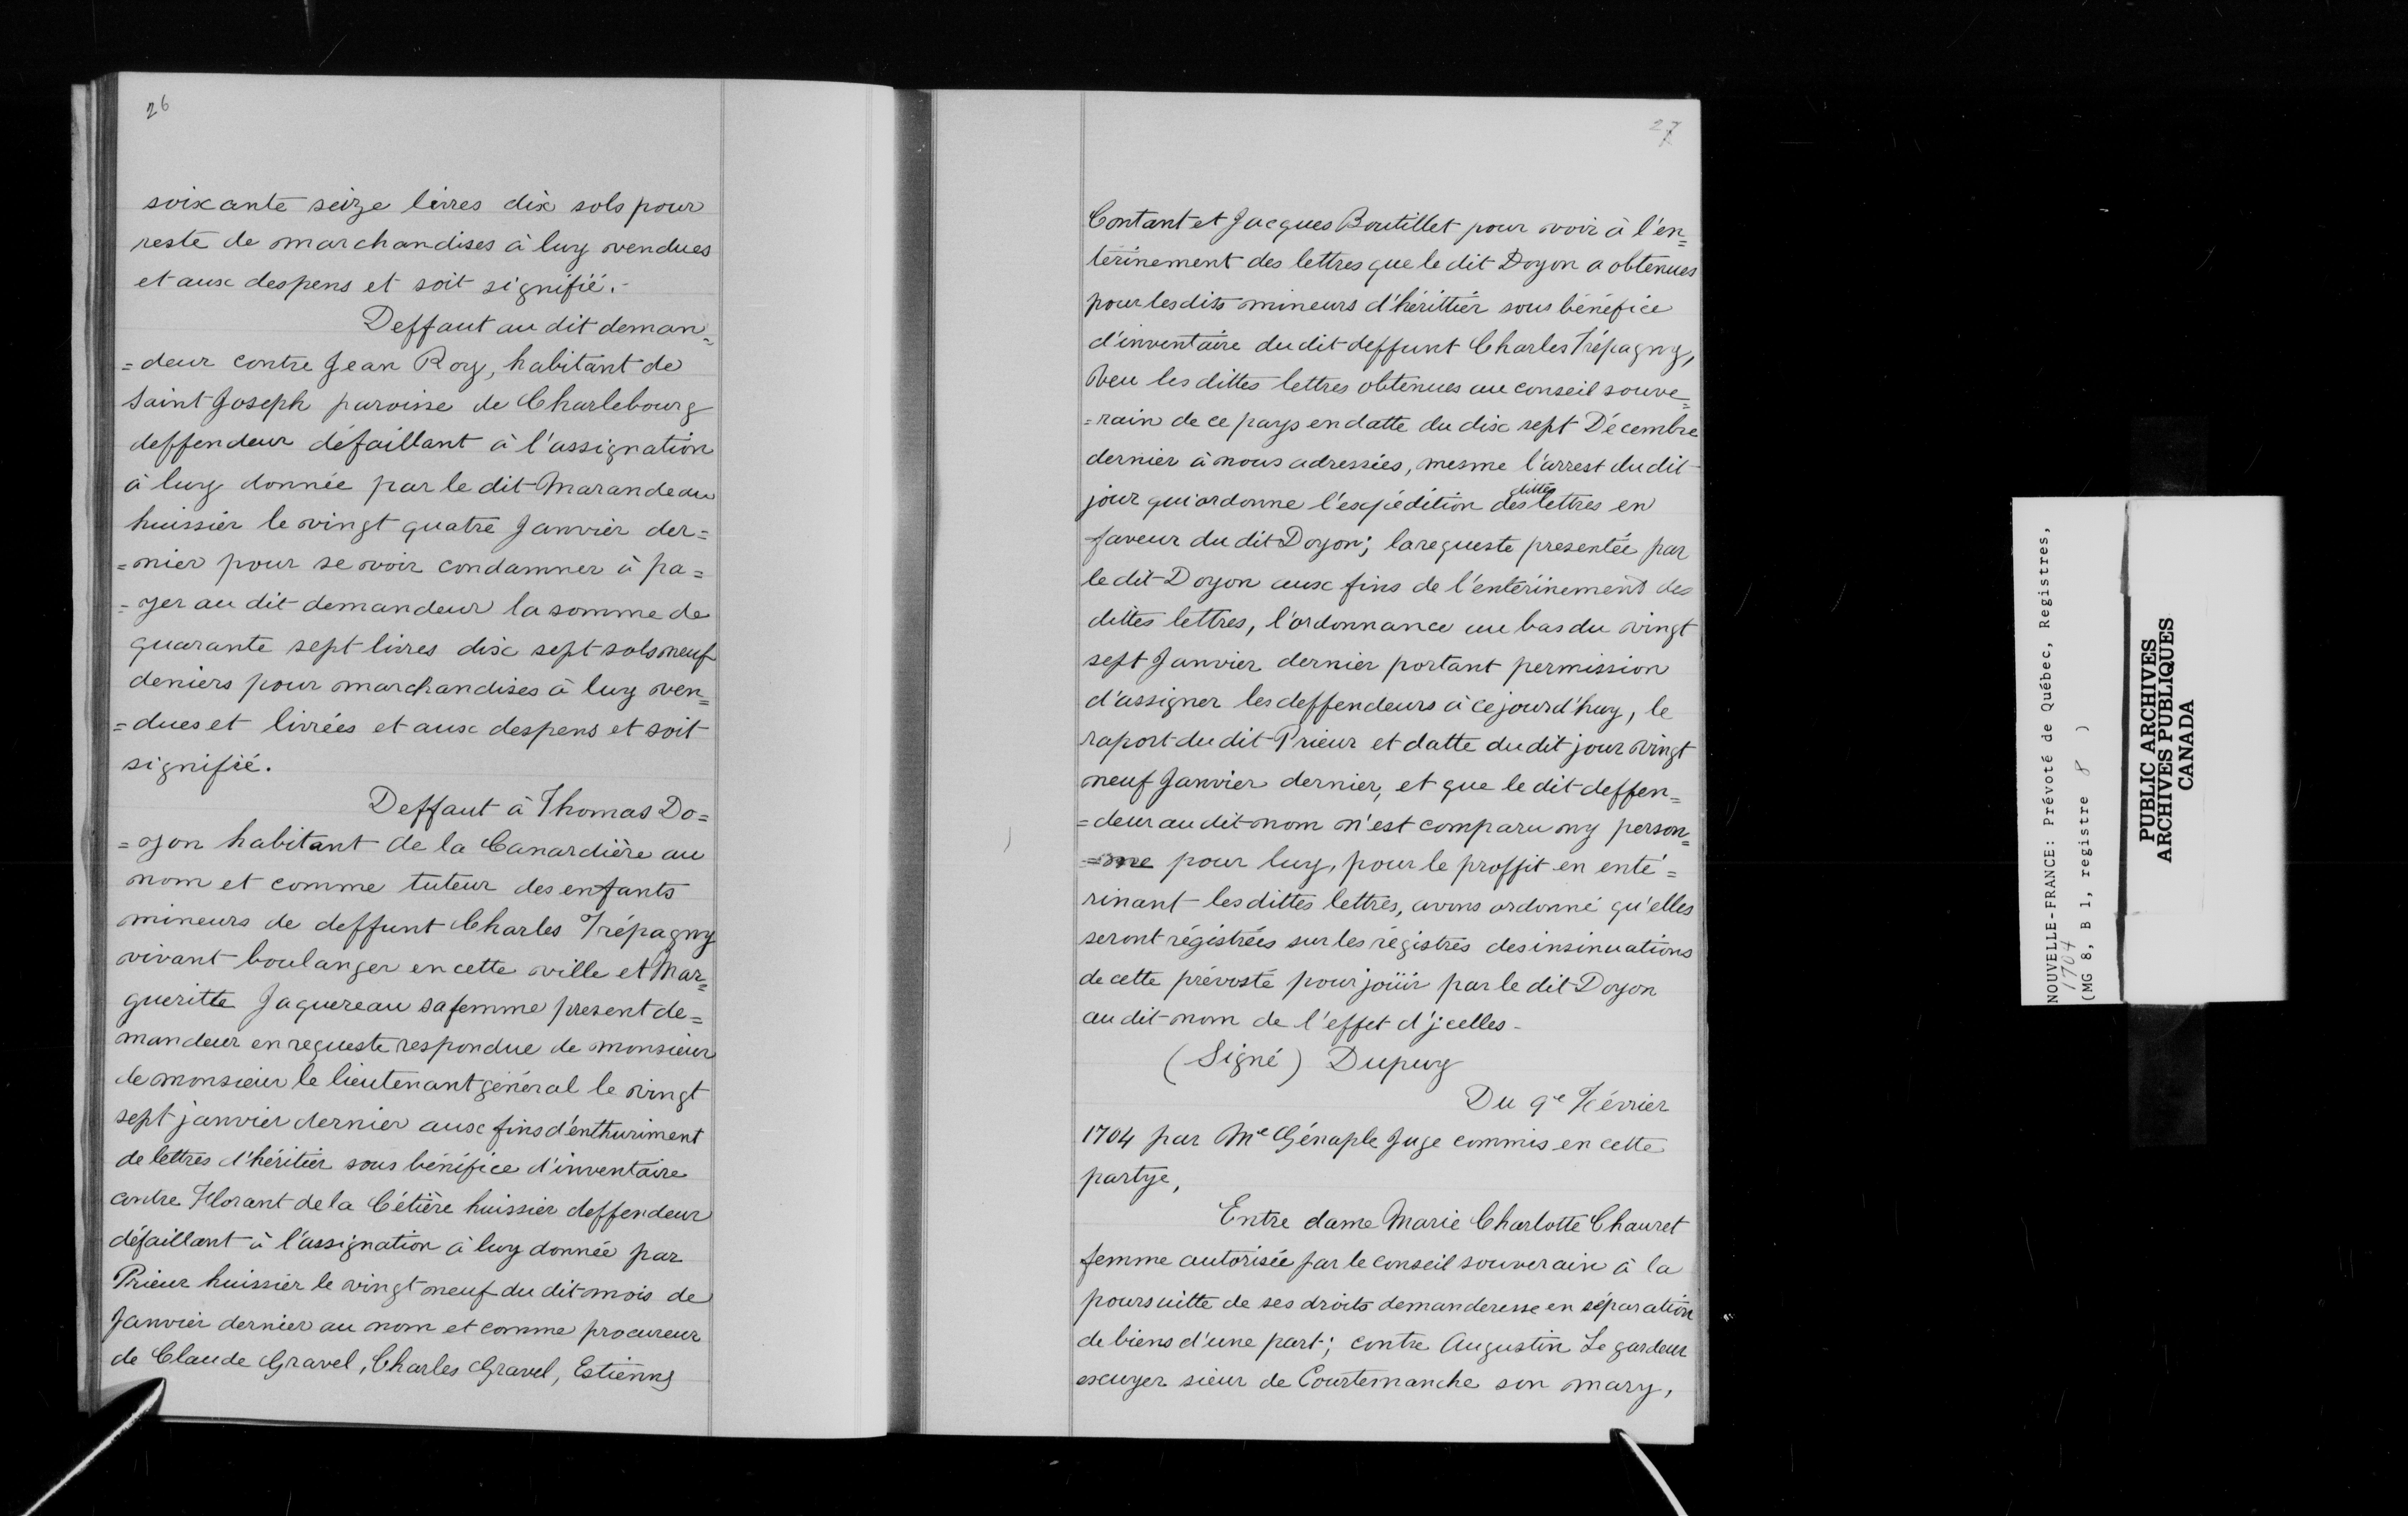 26
soixante seize livres dix sols pour
reste de marchandises à luy vendues
et aux despens et soit signifié.-
Deffaut au dit deman=
=deur contre Jean Roy, habitant de
Saint Joseph paroisse de Charlebourg
deffendeur défaillant à l'assignation
à luy donnée par le dit Marandeau
huissier le vingt quatre Janvier der=
=nier pour se voir condamner à pa=
=yer au dit demandeur la somme de
quarante sept livres dix sept sols neuf
deniers pour marchandises à luy ven=
=dues et livrées et aux despens et soit
signifié.
Deffaut à Thomas Do=
=yon habitant de la Canardière au
nom et comme tuteur des enfants
mineurs de deffunt Charles Trépagny
vivant boulanger en cette ville et Mar=
gueritte Jaquereau sa femme present de=
mandeur en requeste respondue de monsieur
de monsieur le lieutenant général le vingt
sept janvier dernier aux fins d'enthuriment
de lettres d'héritier sous bénéfice d'inventaire
contre Florant de la Cétière huissier deffendeur
défaillant à l'assignation à luy donnée par
Prieur huissier le vingt neuf du dit mois de
Janvier dernier au nom et comme procureur
de Claude Gravel, Charles Gravel, Estienne
27
Contant et Jacques Boutillet pour voir à l'en=
térinement des lettres que le dit Doyon a obtenues
pour les dits mineurs d'hérittier sous bénéfice
d'inventaire du dit deffunt Charles Trépagny,
Veu les dittes lettres obtenues au conseil souve=
=rain de ce pays en datte du dix sept Décembre
dernier à nous adressées, mesme l'arrest du dit
jour qui ordonne l'expédition des dittes lettres en
faveur du dit Doyon; la requeste presentée par
le dit Doyon aux fins de l'entérinement des
dittes lettres, l'ordonnance au bas du vingt
sept Janvier dernier portant permission
d'assigner les deffendeurs à ce jourd'huy, le
raport du dit Prieur et datte du dit jour vingt
neuf Janvier dernier, et que le dit deffen=
=deur au dit nom n'est comparu ny person=
=ne pour luy, pour le proffit en enté=
rinant les dittes lettres, avons ordonné qu'elles
seront régistrées sur les régistres des insinuations
de cette prévosté pour joüir par le dit Doyon
au dit nom de l'effet d'jcelles-
(Signé) Dupuy
Du 9e Février
1704 par Me Génaple Juge commis en cette
partye,
Entre dame Marie Charlotte Chauret
femme autorisée par le conseil souverain à la
poursuitte de ses droits demanderesse en séparation
de biens d'une part; contre Augustin Le gardeur
escuyer sieur de Courtemanche son mary,
NOUVELLE-FRANCE: Prévoté de Québec, Registres,
1704
(MG 8, B 1, registre 8 )
PUBLIC ARCHIVES
ARCHIVES PUBLIQUES
CANADA